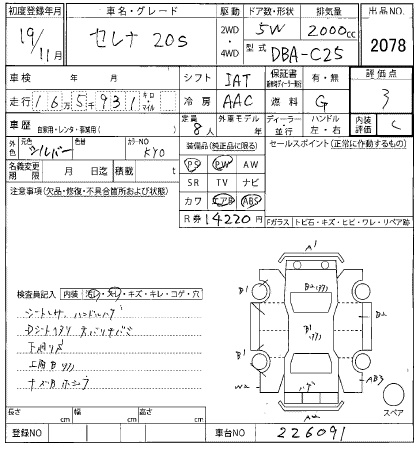 初度登録年月 車名・グレード 駆動 ドア数・形状 排気量 出品NO.
19/11月 セレナ 20S 2WD・4WD 5W 2000cc 2078
型式 DBA-C25
車検 年 月 シフト IAT 保証書 有・無 評価点
走行 165931 キロ・マイル 冷房 AAC 燃料 G 3
車歴 自家用・レンタ・事業用( ) 定員 8人 外車モデル 年 ディーラー・並行 ハンドル 左・右 内装評価 C
外色 元色 シルバー 色替 カラーNO KY0 装備品(純正品に限る) セールスポイント(正常に作動するもの)
名義変更期限 月 日迄 積載 t PS PW AW
注意事項(欠品・修復・不具合箇所および状態) SR TV ナビ
カワ エアB ABS
R券 14220円 Fガラス トビ石・キズ・ヒビ・ワレ・リペア跡
A1
B1 B2
B1 B2
B1
W2 AB3
A2
スペア
検査員記入 内装 汚レ・スレ・キズ・キレ・コゲ・穴
シートスレ ハンドルハゲ
下廻りサビ
長さ cm 幅 cm 高さ cm
登録NO 車台NO 226091